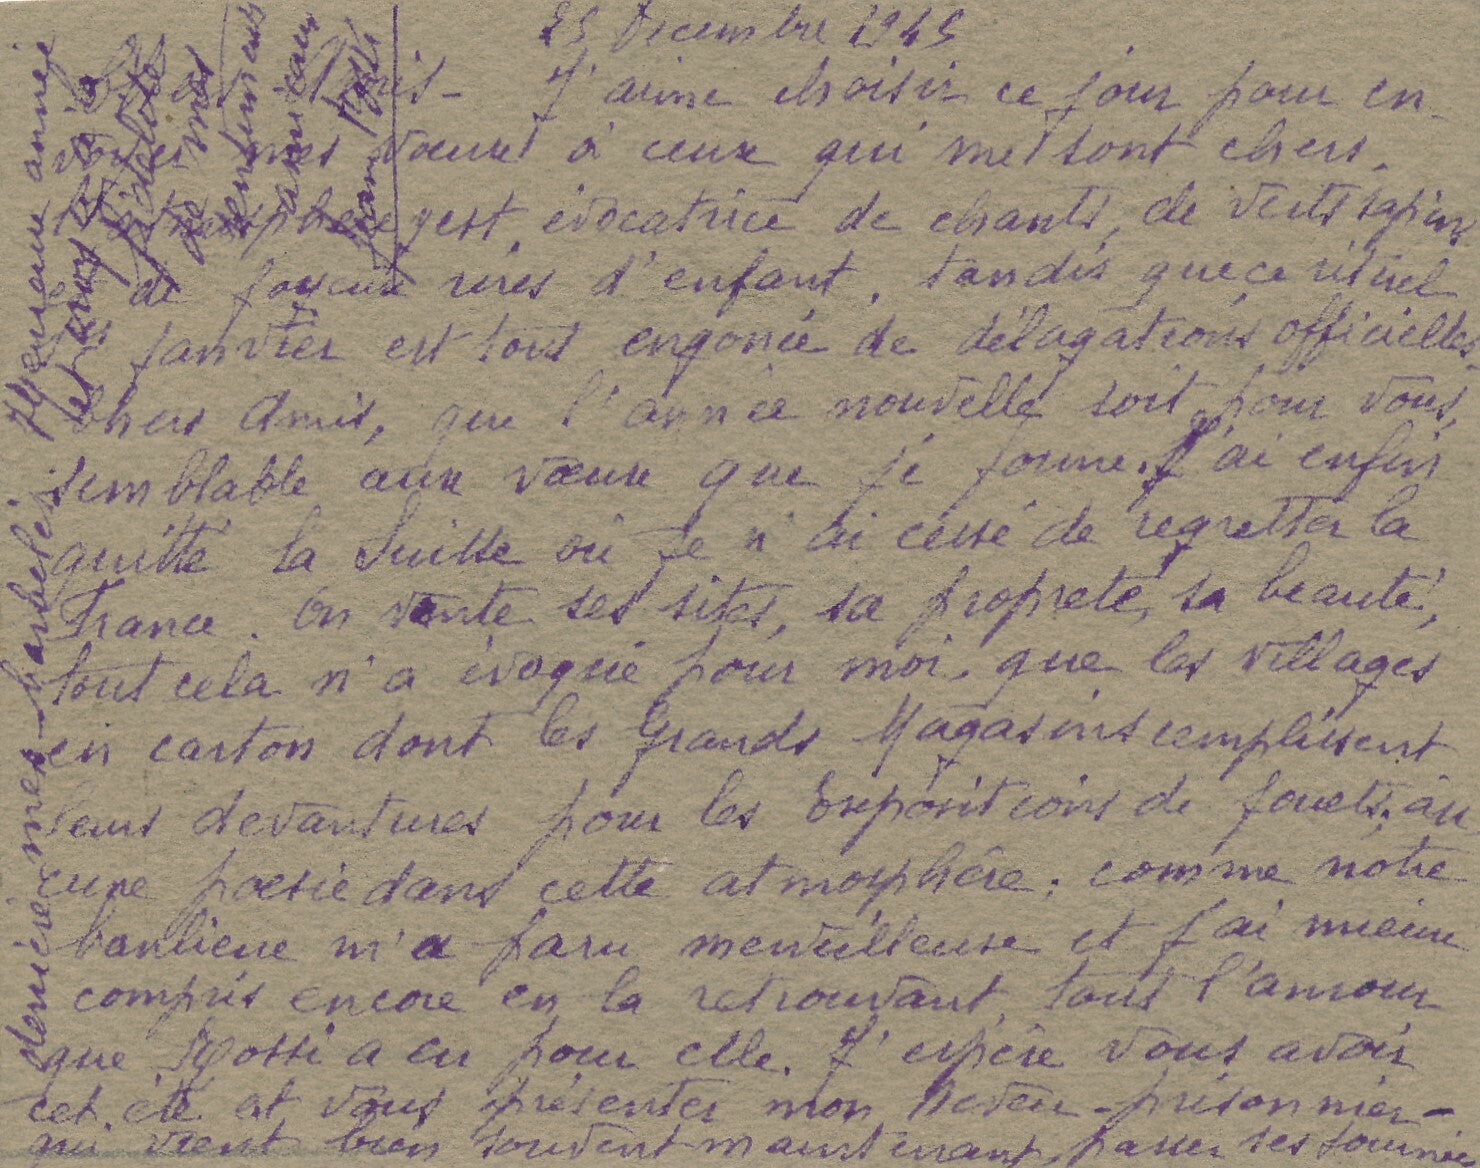 25 Decembre 1945
Chers Amis - J'aime choisir ce jour pour en-
voyer mes vœux à ceux qui me sont chers.
L'atmosphère y est évocatrice de chants, de verts sapins
et de joyeux rires d'enfant, tandis que ce rituel
janvier est tout engoncé de délagations officielles.
Chers Amis, que l'année nouvelle soit, pour vous,
semblable aux vœux que je forme. J'ai enfin
quitté la Suisse où je n'ai cessé de regretter la
France. On vante ses sites, sa propreté, sa beauté,
tout cela n'a évoqué pour moi que les villages
en carton dont les Grands Magasins emplissent
leurs devantures pour les Expositions de jouets; au
cune poesie dans cette atmosphère; comme notre
banlieue m'a paru merveilleuse et j'ai mieux
compris encore en la retrouvant, tout l'amour
que a eu pour elle. J'espère vous avoir
cet été et vous présenter mon Neveu - prisonnier -
qui vient bien souvent maintenant, passer ses
dernières barbelés. Heureuse année
et
fidélité
de mes
sentiments
amicaux